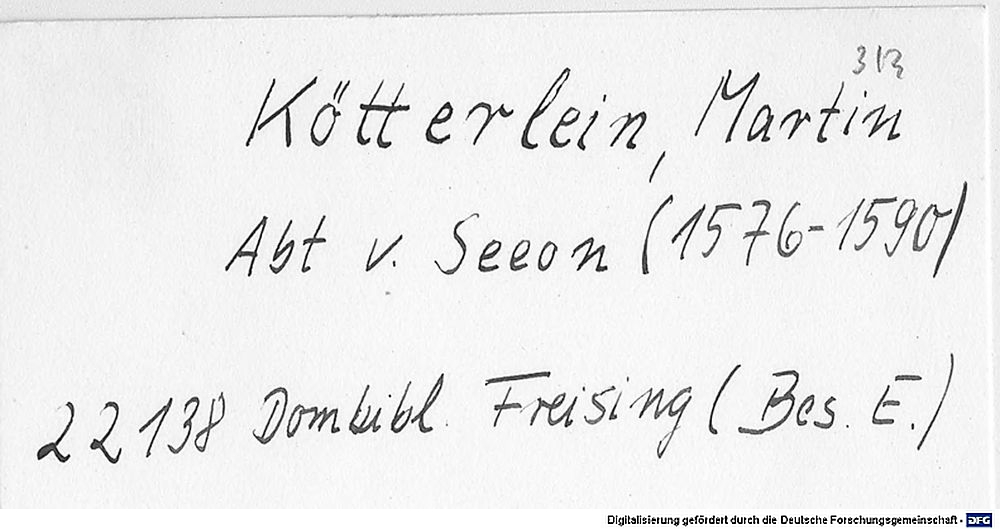 313
Kötterlein, Martin
Abt v. Seeon (1576-1590)
22138 Dombibl. Freising (Bes. E.)
Digitalisierung gefördert durch die Deutsche Forschungsgemeinschaft - DFG